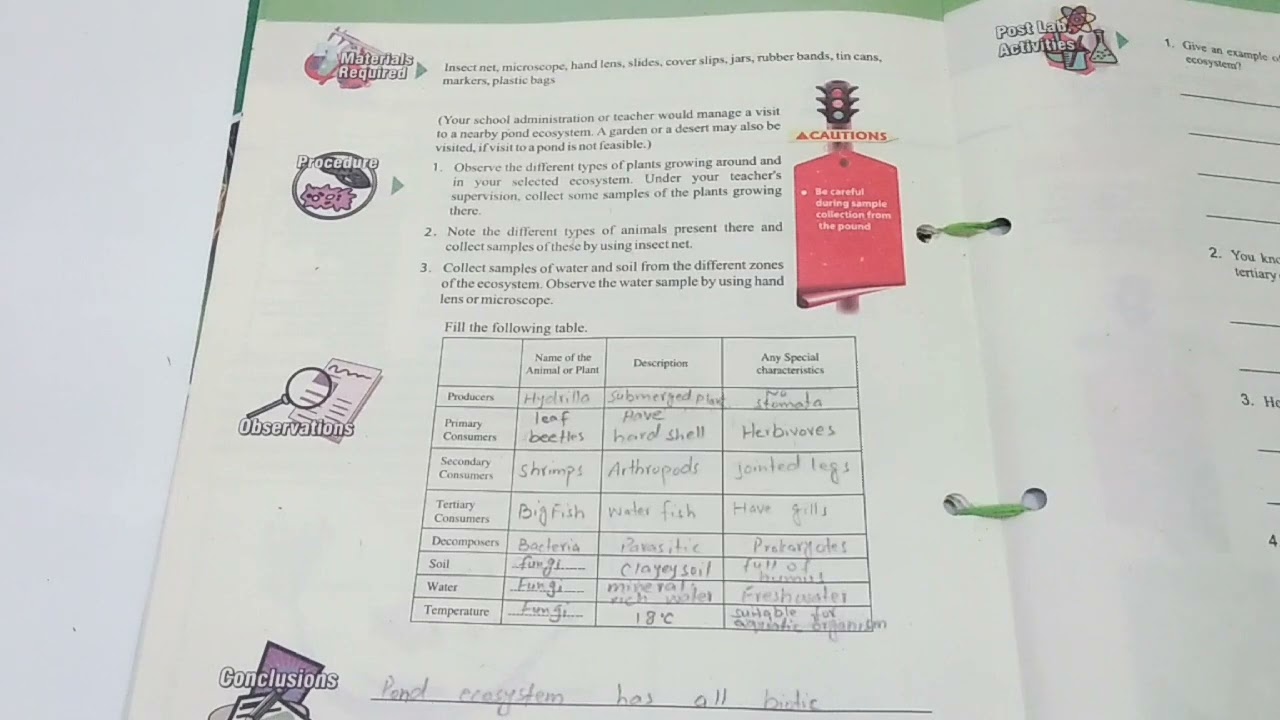 Materials
Required
Insect net, microscope, hand lens, slides, cover slips, jars, rubber bands, tin cans,
markers, plastic bags
(Your school administration or teacher would manage a visit
to a nearby pond ecosystem. A garden or a desert may also be
visited, if visit to a pond is not feasible.)
Procedure
1. Observe the different types of plants growing around and
in your selected ecosystem. Under your teacher's
supervision, collect some samples of the plants growing
there.
2. Note the different types of animals present there and
collect samples of these by using insect net.
3. Collect samples of water and soil from the different zones
of the ecosystem. Observe the water sample by using hand
lens or microscope.
CAUTIONS
• Be careful
during sample
collection from
the pound
Observations
Fill the following table.
Name of the Animal or Plant Description Any Special characteristics
Producers Hydrilla Submerged plant No stomata
Primary Consumers leaf beetles Have hard shell Herbivoves
Secondary Consumers Shrimps Arthropods jointed legs
Tertiary Consumers Big Fish Water fish Have gills
Decomposers Bacteria Parasitic Prokaryotes
Soil fungi clayey soil full of humus
Water Fungi mineral rich water Freshwater
Temperature Fungi 18°C suitable for aquatic organism
Conclusions
Pond ecosystem has all biotic
Post Lab
Activities
1. Give an example
ecosystem?
2. You
tertiary
3.
4